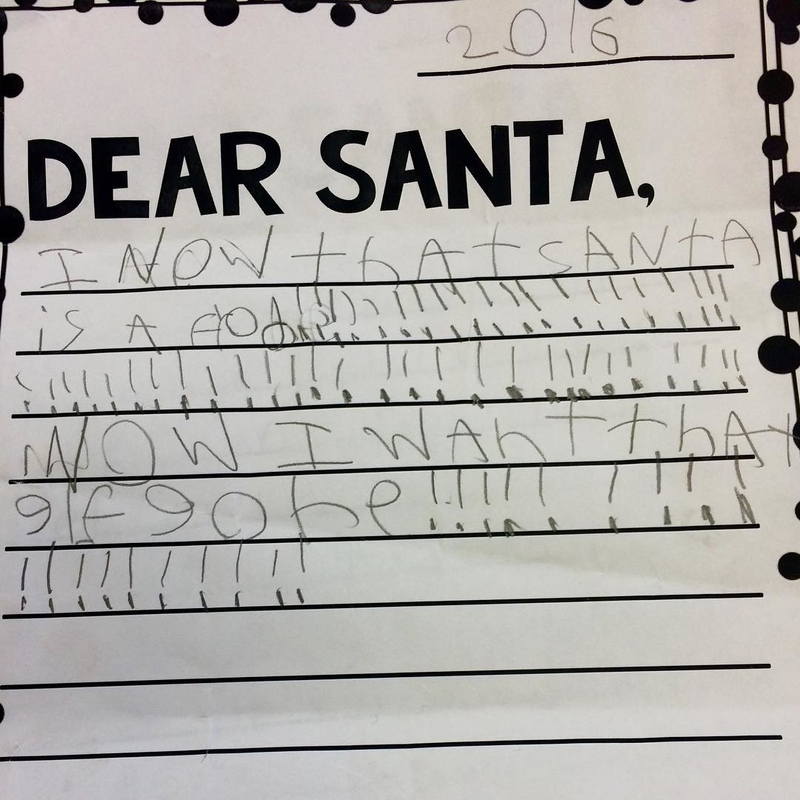 2016
DEAR SANTA,
I NOW thAt SANtA
is A !!!!!!!!!!!!!!!!!!!!!!!!
!!!!!!!!!!!!!!!!!!!!!!!!!!!!!!!!!
NOW I WAnT thAt
glf gone!!!!!!!!!!
!!!!!!!!!!!